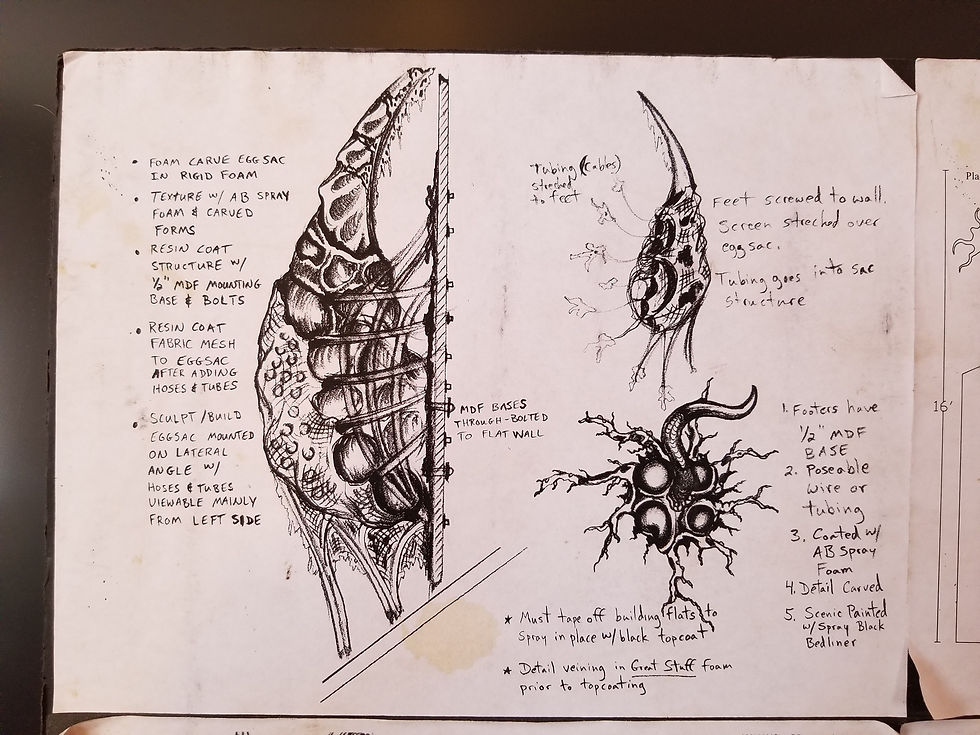 • FOAM CARVE EGGSAC
IN RIGID FOAM
• TEXTURE W/ AB SPRAY
FOAM & CARVED
FORMS
• RESIN COAT
STRUCTURE W/
1/2" MDF MOUNTING
BASE & BOLTS
• RESIN COAT
FABRIC MESH
TO EGGSAC
AFTER ADDING
HOSES & TUBES
• SCULPT/BUILD
EGGSAC MOUNTED
ON LATERAL
ANGLE W/
HOSES & TUBES
VIEWABLE MAINLY
FROM LEFT SIDE
MDF BASES
THROUGH-BOLTED
TO FLAT WALL
Tubing (cables)
streched
to feet
Feet screwed to wall.
Screen streched over
eggsac.
Tubing goes into sac
structure
1. Footers have
1/2" MDF
BASE
2. Poseable
wire or
tubing
3. Coated w/
AB Spray
Foam
4. Detail Carved
5. Scenic Painted
w/ Spray Black
Bedliner
* Must tape off building flats to
spray in place w/ black topcoat
* Detail veining in Great Stuff foam
prior to topcoating
Pla
16'